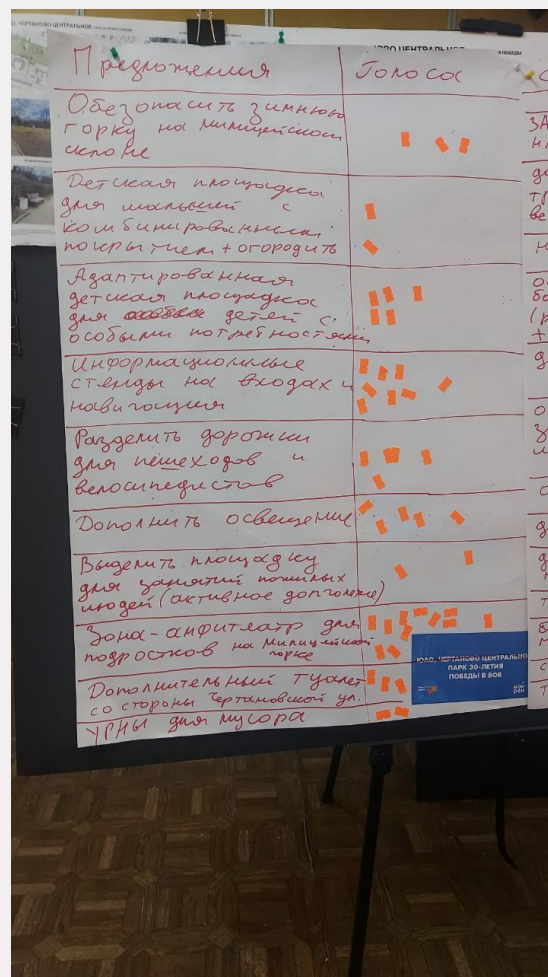 ЧЕРТАНОВО ЦЕНТРАЛЬНОЕ
Предложения
Голоса
Обезопасить зимнюю
горку на милицейском
склоне
Детская площадка
для малышей с
комбинированным
покрытием + огородить
Адаптированная
детская площадка
для детей с
особыми потребностями
Информационные
стенды на входах и
навигация
Разделить дорожки
для пешеходов и
велосипедистов
Дополнить освещение
Выделить площадку
для занятий пожилых
людей (активное долголетие)
Зона-амфитеатр для
подростков на милицейской
горке
Дополнительный туалет
со стороны Чертановской ул.
Урны для мусора
ЮАО, ЧЕРТАНОВО ЦЕНТРАЛЬНО
ПАРК 30-ЛЕТИЯ
ПОБЕДЫ В ВОВ
МОЙ
РАЙОН